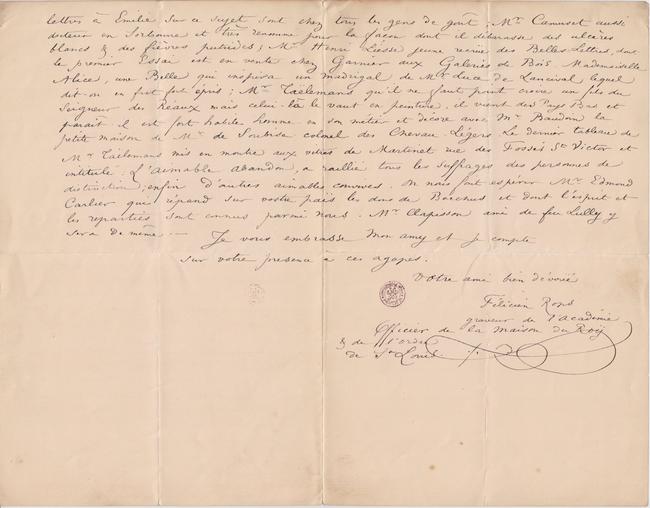 lettres à Emilie sur ce sujet sont chez tous les gens de goût ; Mr. Camuset aussi
docteur en Sorbonne et très renommé pour la façon dont il débarasse des ulcères
blancs & des fièvres putrides ; Mr Henri Liesse jeune recrue des Belles Lettres, dont
le premier Essai est en vente chez Garnier aux Galeries de Bois, Mademoiselle
Alice, une Belle qui inspira un madrigal de Mr. Luce de Lancival lequel
dit-on en fut fort épris ; Mr. Taëlemans qu'il ne faut point croire un fils du
Seigneur des Réaux mais celui-là le vaut en peinture, il vient des Pays Bas et
parait-il est fort habile homme en son métier et décore avec Mr Baudon la
petite maison de Mr de Soubise colonel des Chevau-Légers. Le dernier tableau de
Mr Taëlemans mis en montre aux vitres de Martinet rue des Fossés St Victor et
intitulé : L'aimable abandon, a rallié tous les suffrages des personnes de
distinction, enfin d'autres aimables convives. On nous fait espérer Mr. Edmond
Carlier qui répand sur vostre païs les dons de Bacchus et dont l'esprit et
les reparties sont connus parmi nous. Mr. Clapisson ami de feu Lully y
sera de même. —
Je vous embrasse Mon amy et je compte
sur votre presence à ces agapes.
Votre ami bien dévoüé
Félicien Rops
graveur de l'académie
Officier de la maison du Roÿ
& de l'ordre
de St Louis.